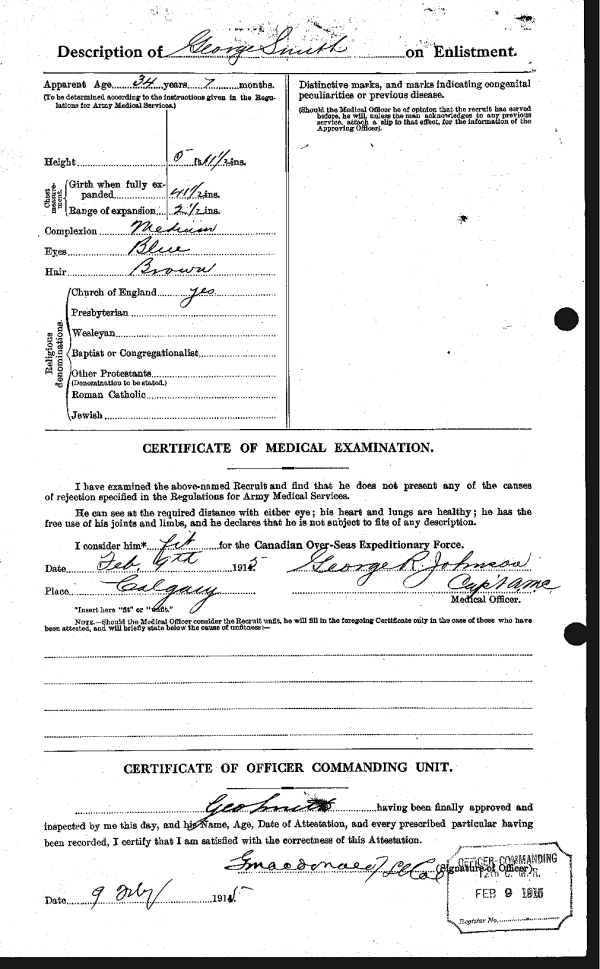 Description of George Smith on Enlistment.
Apparent Age 34 years 7 months.
(To be determined according to the instructions given in the Regulations for Army Medical Services.)
Height 5 ft. 11 1/2 ins.
Chest measurement.
Girth when fully expanded 41 1/2 ins.
Range of expansion 2 1/2 ins.
Complexion Medium
Eyes Blue
Hair Brown
Religious denominations.
Church of England yes
Presbyterian
Wesleyan
Baptist or Congregationalist
Other Protestants
(Denomination to be stated.)
Roman Catholic
Jewish
Distinctive marks, and marks indicating congenital
peculiarities or previous disease.
(Should the Medical Officer be of opinion that the recruit has served
before, he will, unless the man acknowledges to any previous
service, attach a slip to that effect, for the information of the
Approving Officer).
CERTIFICATE OF MEDICAL EXAMINATION.
I have examined the above-named Recruit and find that he does not present any of the causes
of rejection specified in the Regulations for Army Medical Services.
He can see at the required distance with either eye; his heart and lungs are healthy; he has the
free use of his joints and limbs, and he declares that he is not subject to fits of any description.
I consider him* fit for the Canadian Over-Seas Expeditionary Force.
Date Feb, 9th 1915 George R. Johnson
Place Calgary Capt AMC
Medical Officer.
*Insert here "fit" or "unfit."
NOTE.—Should the Medical Officer consider the Recruit unfit, he will fill in the foregoing Certificate only in the case of those who have
been attested, and will briefly state below the cause of unfitness:—
CERTIFICATE OF OFFICER COMMANDING UNIT.
Geo Smith having been finally approved and
inspected by me this day, and his Name, Age, Date of Attestation, and every prescribed particular having
been recorded, I certify that I am satisfied with the correctness of this Attestation.
GMacdonald (Signature of Officer)
Date 9 Feby 1915
OFFICER COMMANDING
12th C. M. R.
FEB 9 1915
Register No.